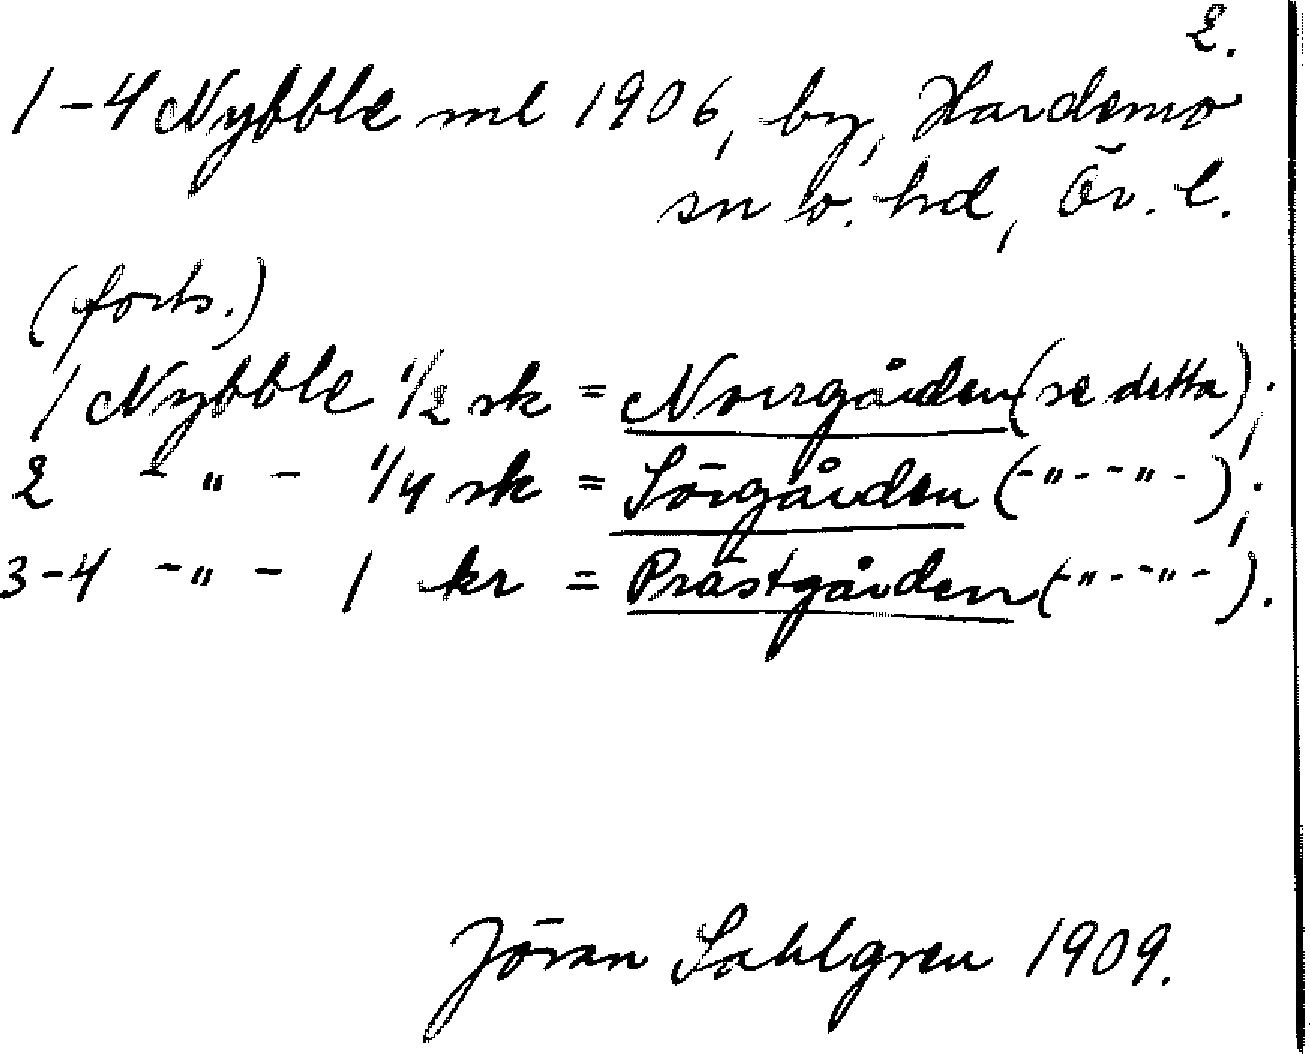 2.
1-4 Nybble ml 1906, by, Hardemo
sn o. hd, Ör. l.
(forts.)
1 Nybble 1/2 sk = Norrgården (se detta);
2 -"- 1/4 sk = Sörgården (-"- -"-);
3-4 -"- 1 kr = Prästgården (-"- -"-).
Jöran Sahlgren 1909.